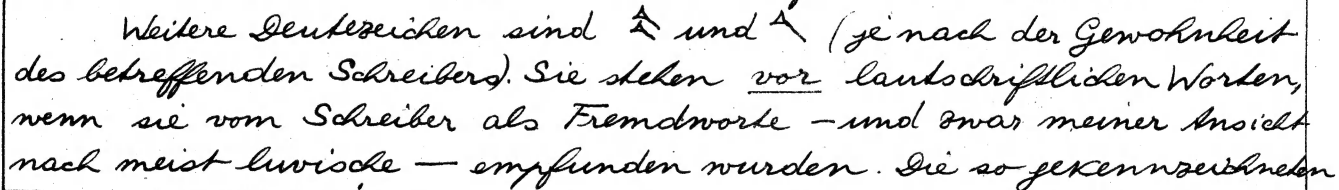 Weitere Deutezeichen sind 𒀹𒀹 und 𒀹 (je nach der Gewohnheit
des betreffenden Schreibers). Sie stehen vor lautschriftlichen Worten,
wenn sie vom Schreiber als Fremdworte – und zwar meiner Ansicht
nach meist luvische — empfunden wurden. Die so gekennzeichneten